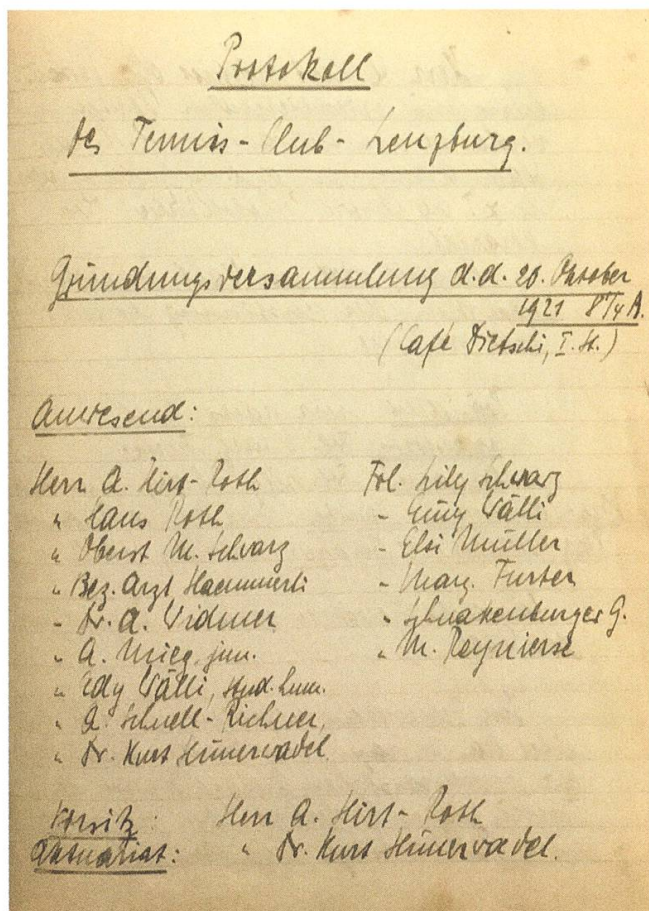 Protokoll
des Tennis-Club-Lenzburg.
Gründungsversammlung d.d. 20. Oktober
1921 8¼ A.
(Café Dietschi, I. St.)
Anwesend:
Herr A. Hirt-Roth
" Hans Roth
" Oberst M. Schwarz
" Bez. Arzt Haemmerli
" Dr. A. Widmer
" A. Mieg, jun.
" Edy Wälli, stud. hum.
" A. Schnell-Richner,
" Dr. Kurt Hünerwadel.
Frl. Lily Schwarz
" Emy Wälli
" Elsi Müller
" Marg. Furter
" Schnakenburger G.
" M. Reynierse
Vorsitz: Herr A. Hirt-Roth
Aktuariat: " Dr. Kurt Hünerwadel.